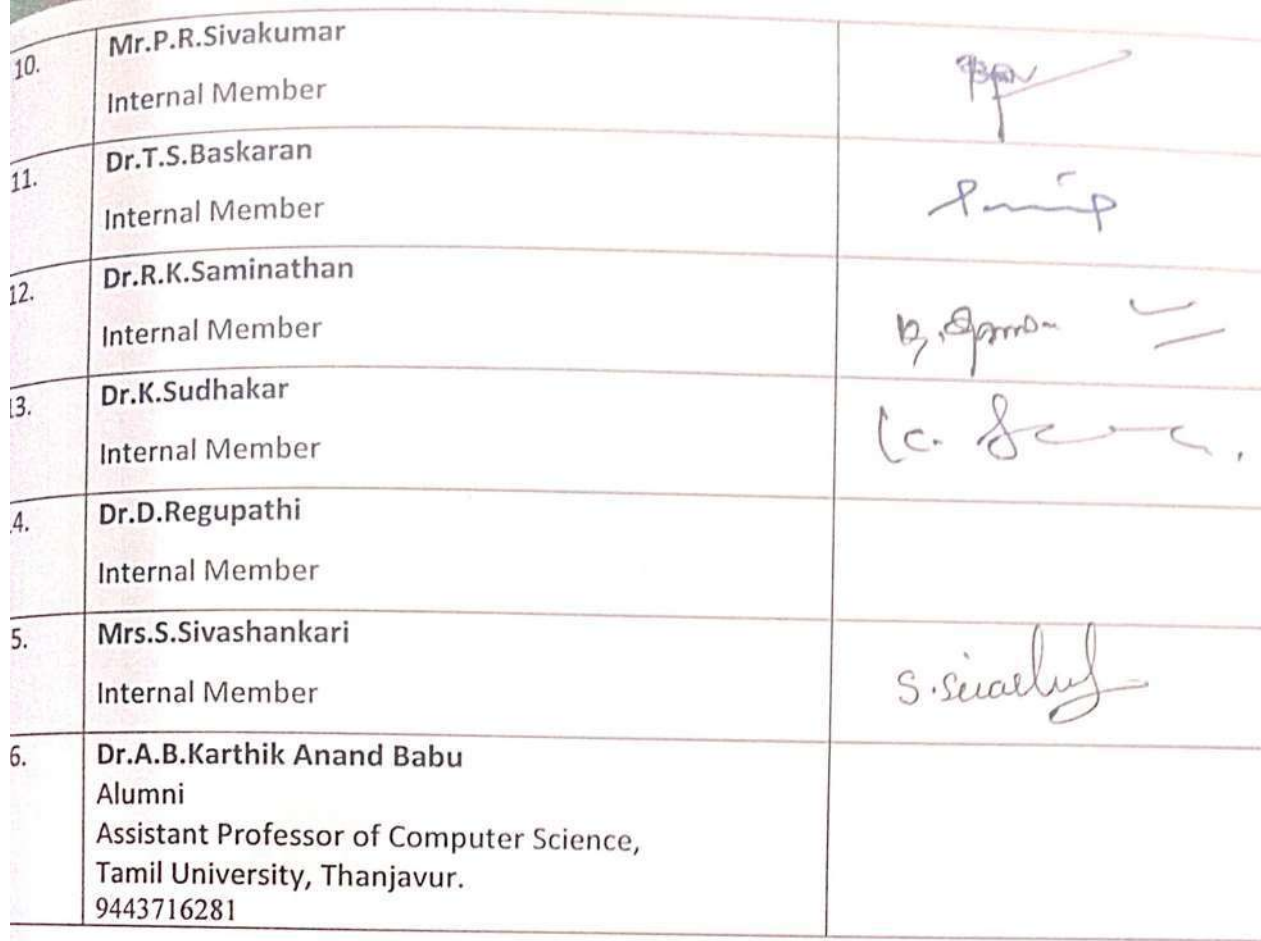 10.
Mr.P.R.Sivakumar
Internal Member
11.
Dr.T.S.Baskaran
Internal Member
12.
Dr.R.K.Saminathan
Internal Member
3.
Dr.K.Sudhakar
Internal Member
K.
4.
Dr.D.Regupathi
Internal Member
5.
Mrs.S.Sivashankari
Internal Member
6.
Dr.A.B.Karthik Anand Babu
Alumni
Assistant Professor of Computer Science,
Tamil University, Thanjavur.
9443716281